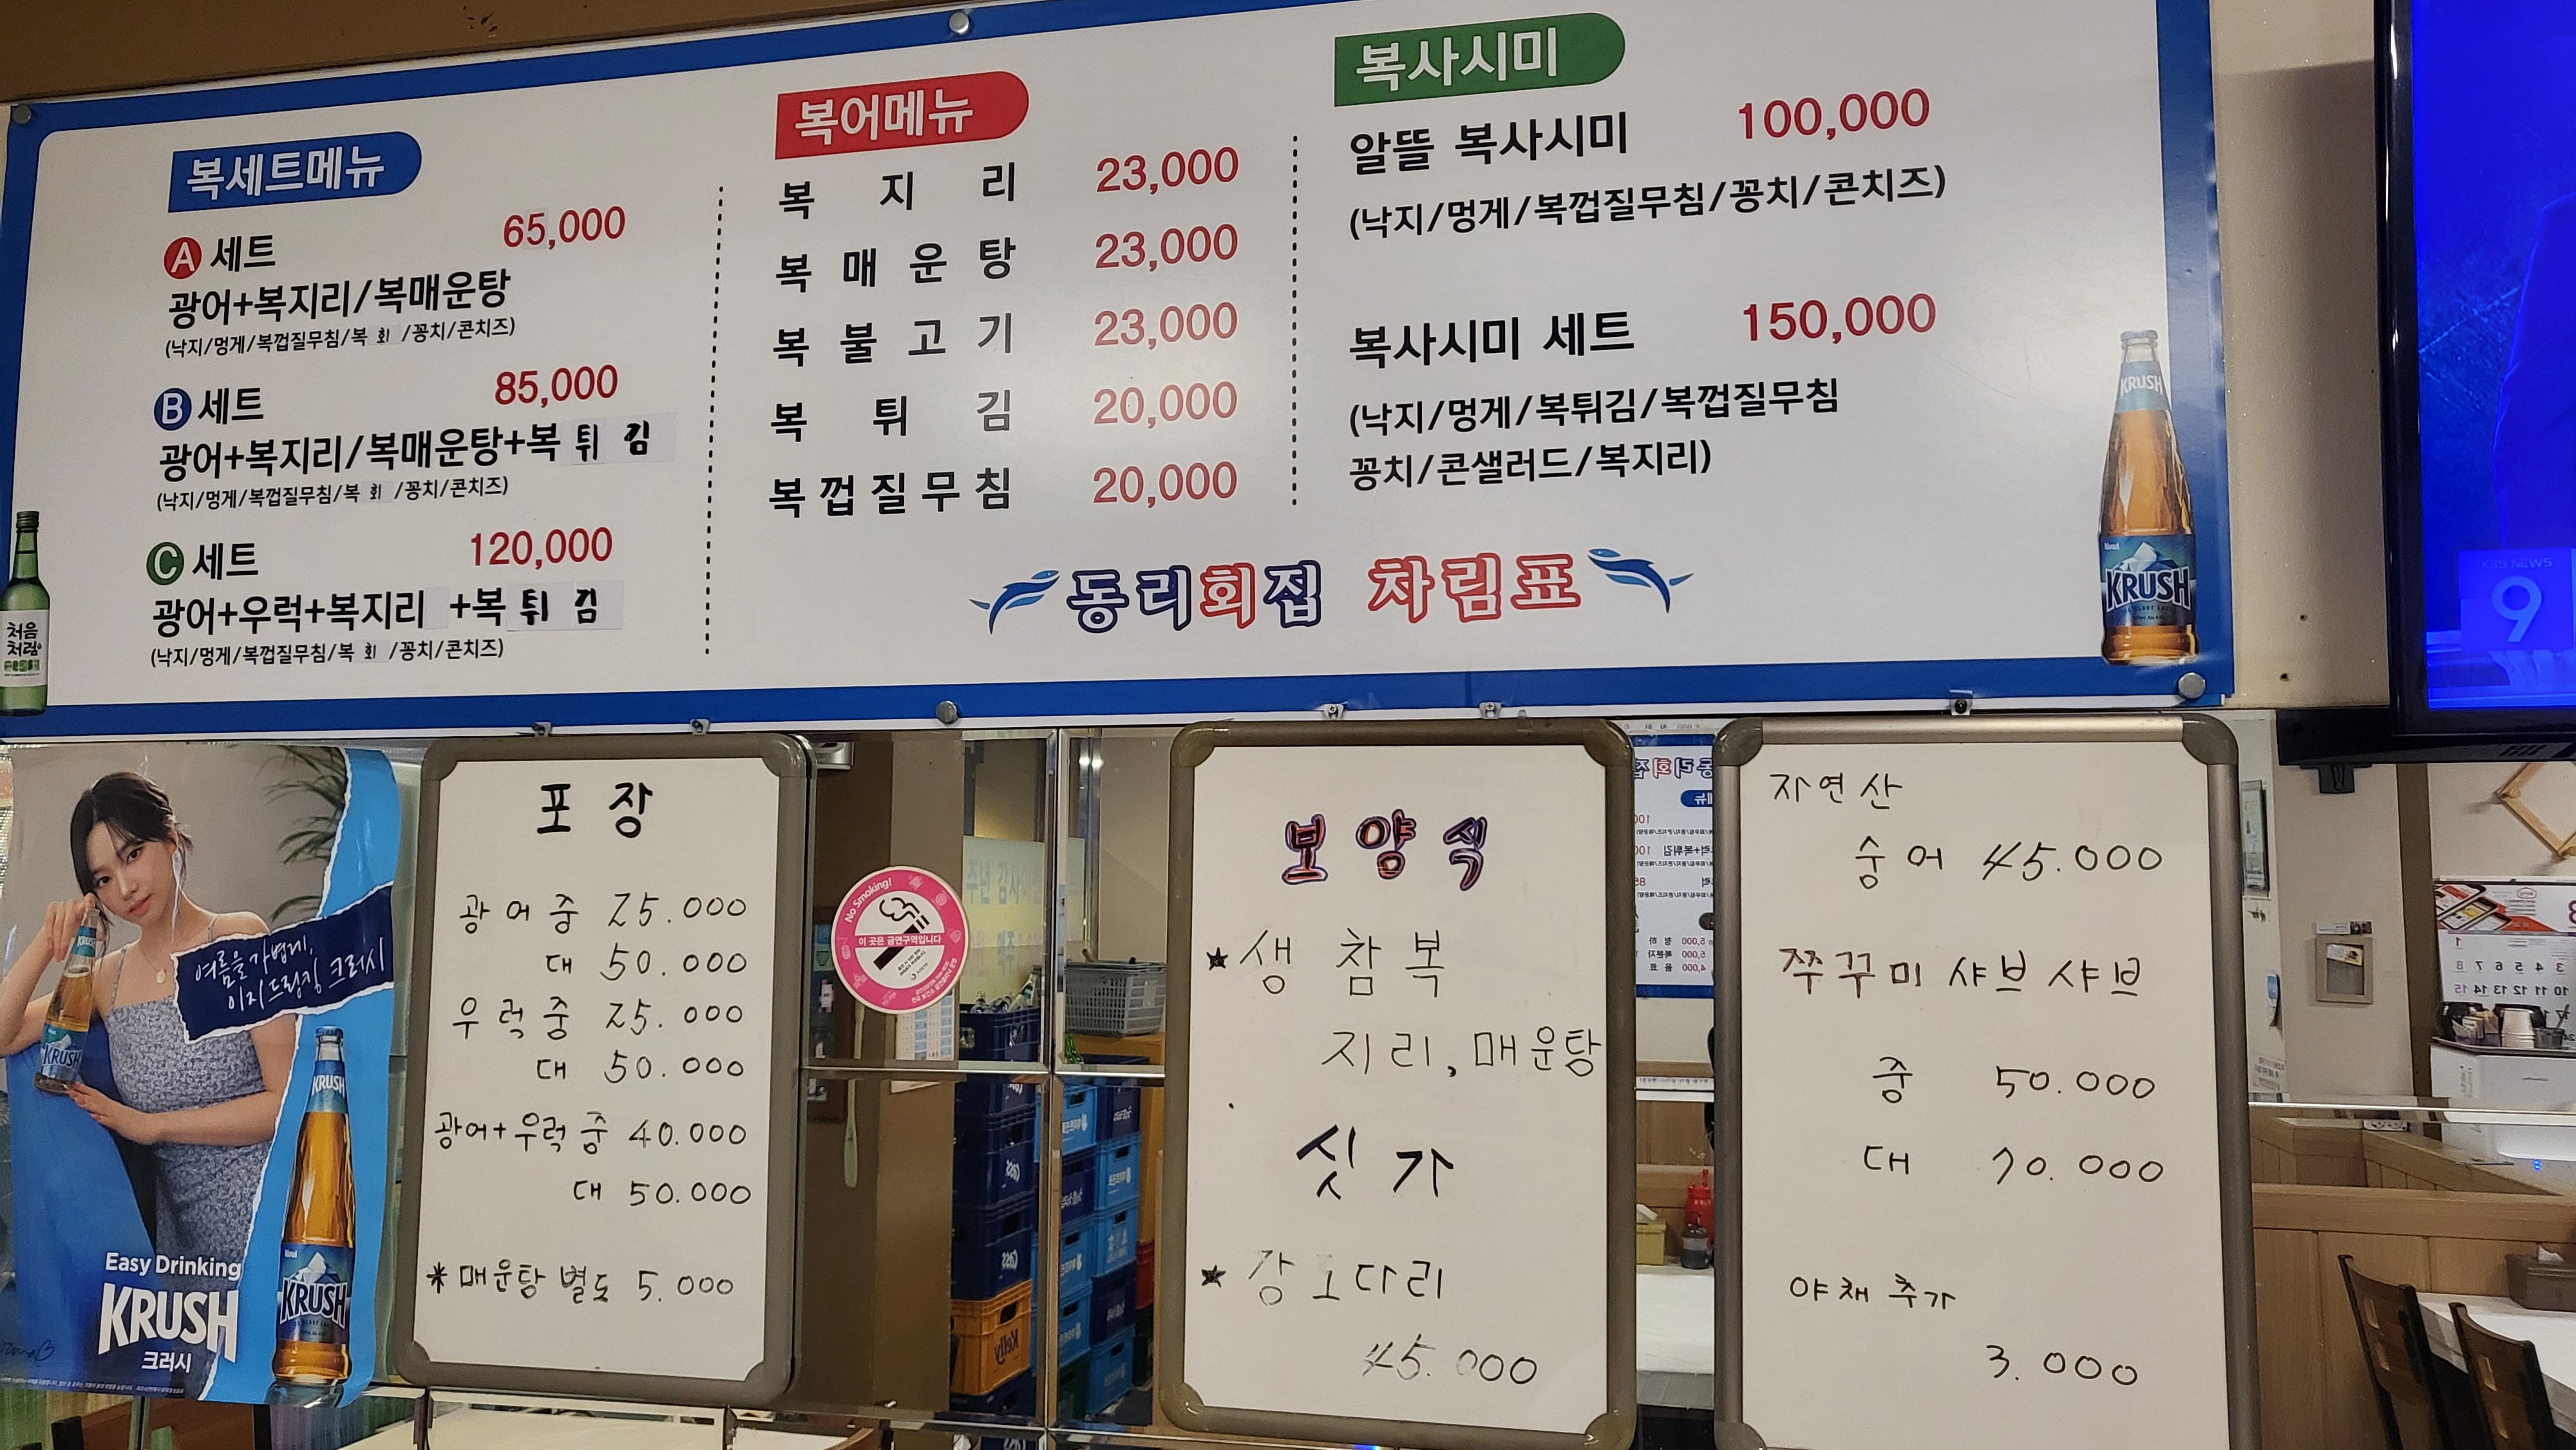 복세트메뉴
A 세트 65,000
광어+복지리/복매운탕
(낙지/멍게/복껍질무침/복 회 /꽁치/콘치즈)
B 세트 85,000
광어+복지리/복매운탕+복 튀 김
(낙지/멍게/복껍질무침/복 회 /꽁치/콘치즈)
C 세트 120,000
광어+우럭+복지리 +복 튀 김
(낙지/멍게/복껍질무침/복 회 /꽁치/콘치즈)
복어메뉴
복 지 리 23,000
복 매 운 탕 23,000
복 불 고 기 23,000
복 튀 김 20,000
복 껍 질 무 침 20,000
복사시미
알뜰 복사시미 100,000
(낙지/멍게/복껍질무침/꽁치/콘치즈)
복사시미 세트 150,000
(낙지/멍게/복튀김/복껍질무침
꽁치/콘샐러드/복지리)
동리회집 차림표
처음
처럼
KRUSH
KRUSH
KBS NEWS
9
여름을 가볍게,
이지 드링킹 크러시
KRUSH
KRUSH
KRUSH
KRUSH
Easy Drinking
KRUSH
크러시
포 장
광 어 중 25.000
대 50.000
우 럭 중 25.000
대 50.000
광어+우럭 중 40.000
대 50.000
* 매운탕 별도 5.000
No Smoking!
이 곳은 금연구역입니다
보 양 식
★ 생 참 복
지 리, 매운탕
싯 가
★ 강 도다리
45.000
자연산
숭 어 45.000
쭈꾸미 샤브 샤브
중 50.000
대 70.000
야채 추가
3.000
Kelly